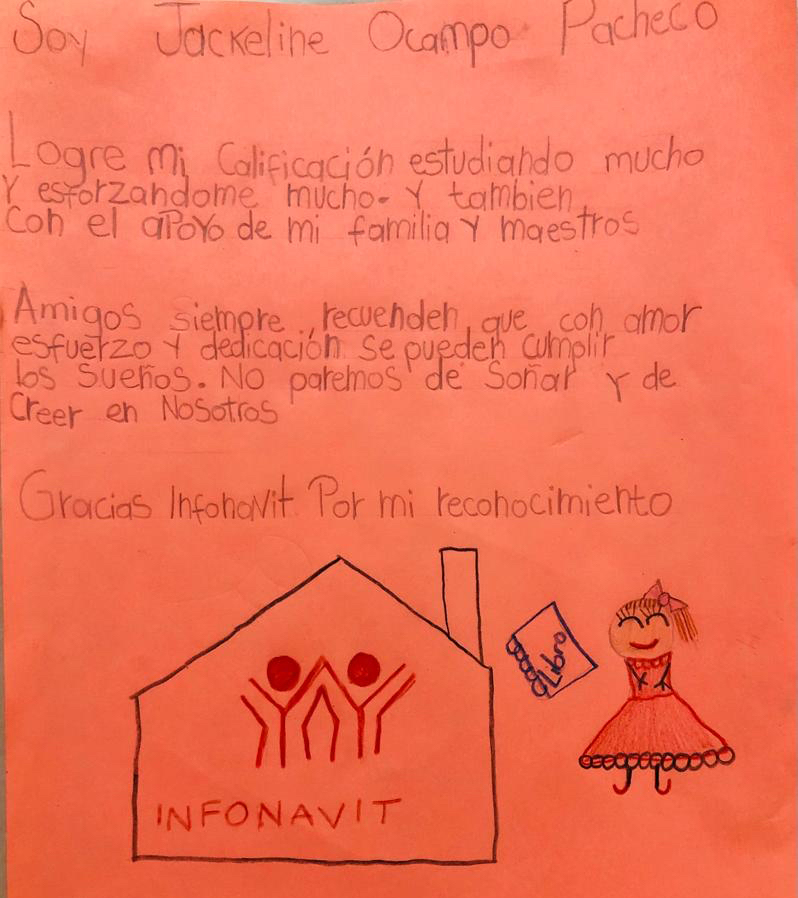 Soy Jackeline Ocampo Pacheco
Logre mi Calificación estudiando mucho
Y esforzandome mucho. Y tambien
Con el apoyo de mi familia Y maestros
Amigos siempre recuenden que con amor
esfuerzo Y dedicación se pueden cumplir
los Sueños. No paremos de Soñar Y de
Creer en Nosotros
Gracias InfonaVit Por mi reconocimiento
Libro
INFONAVIT